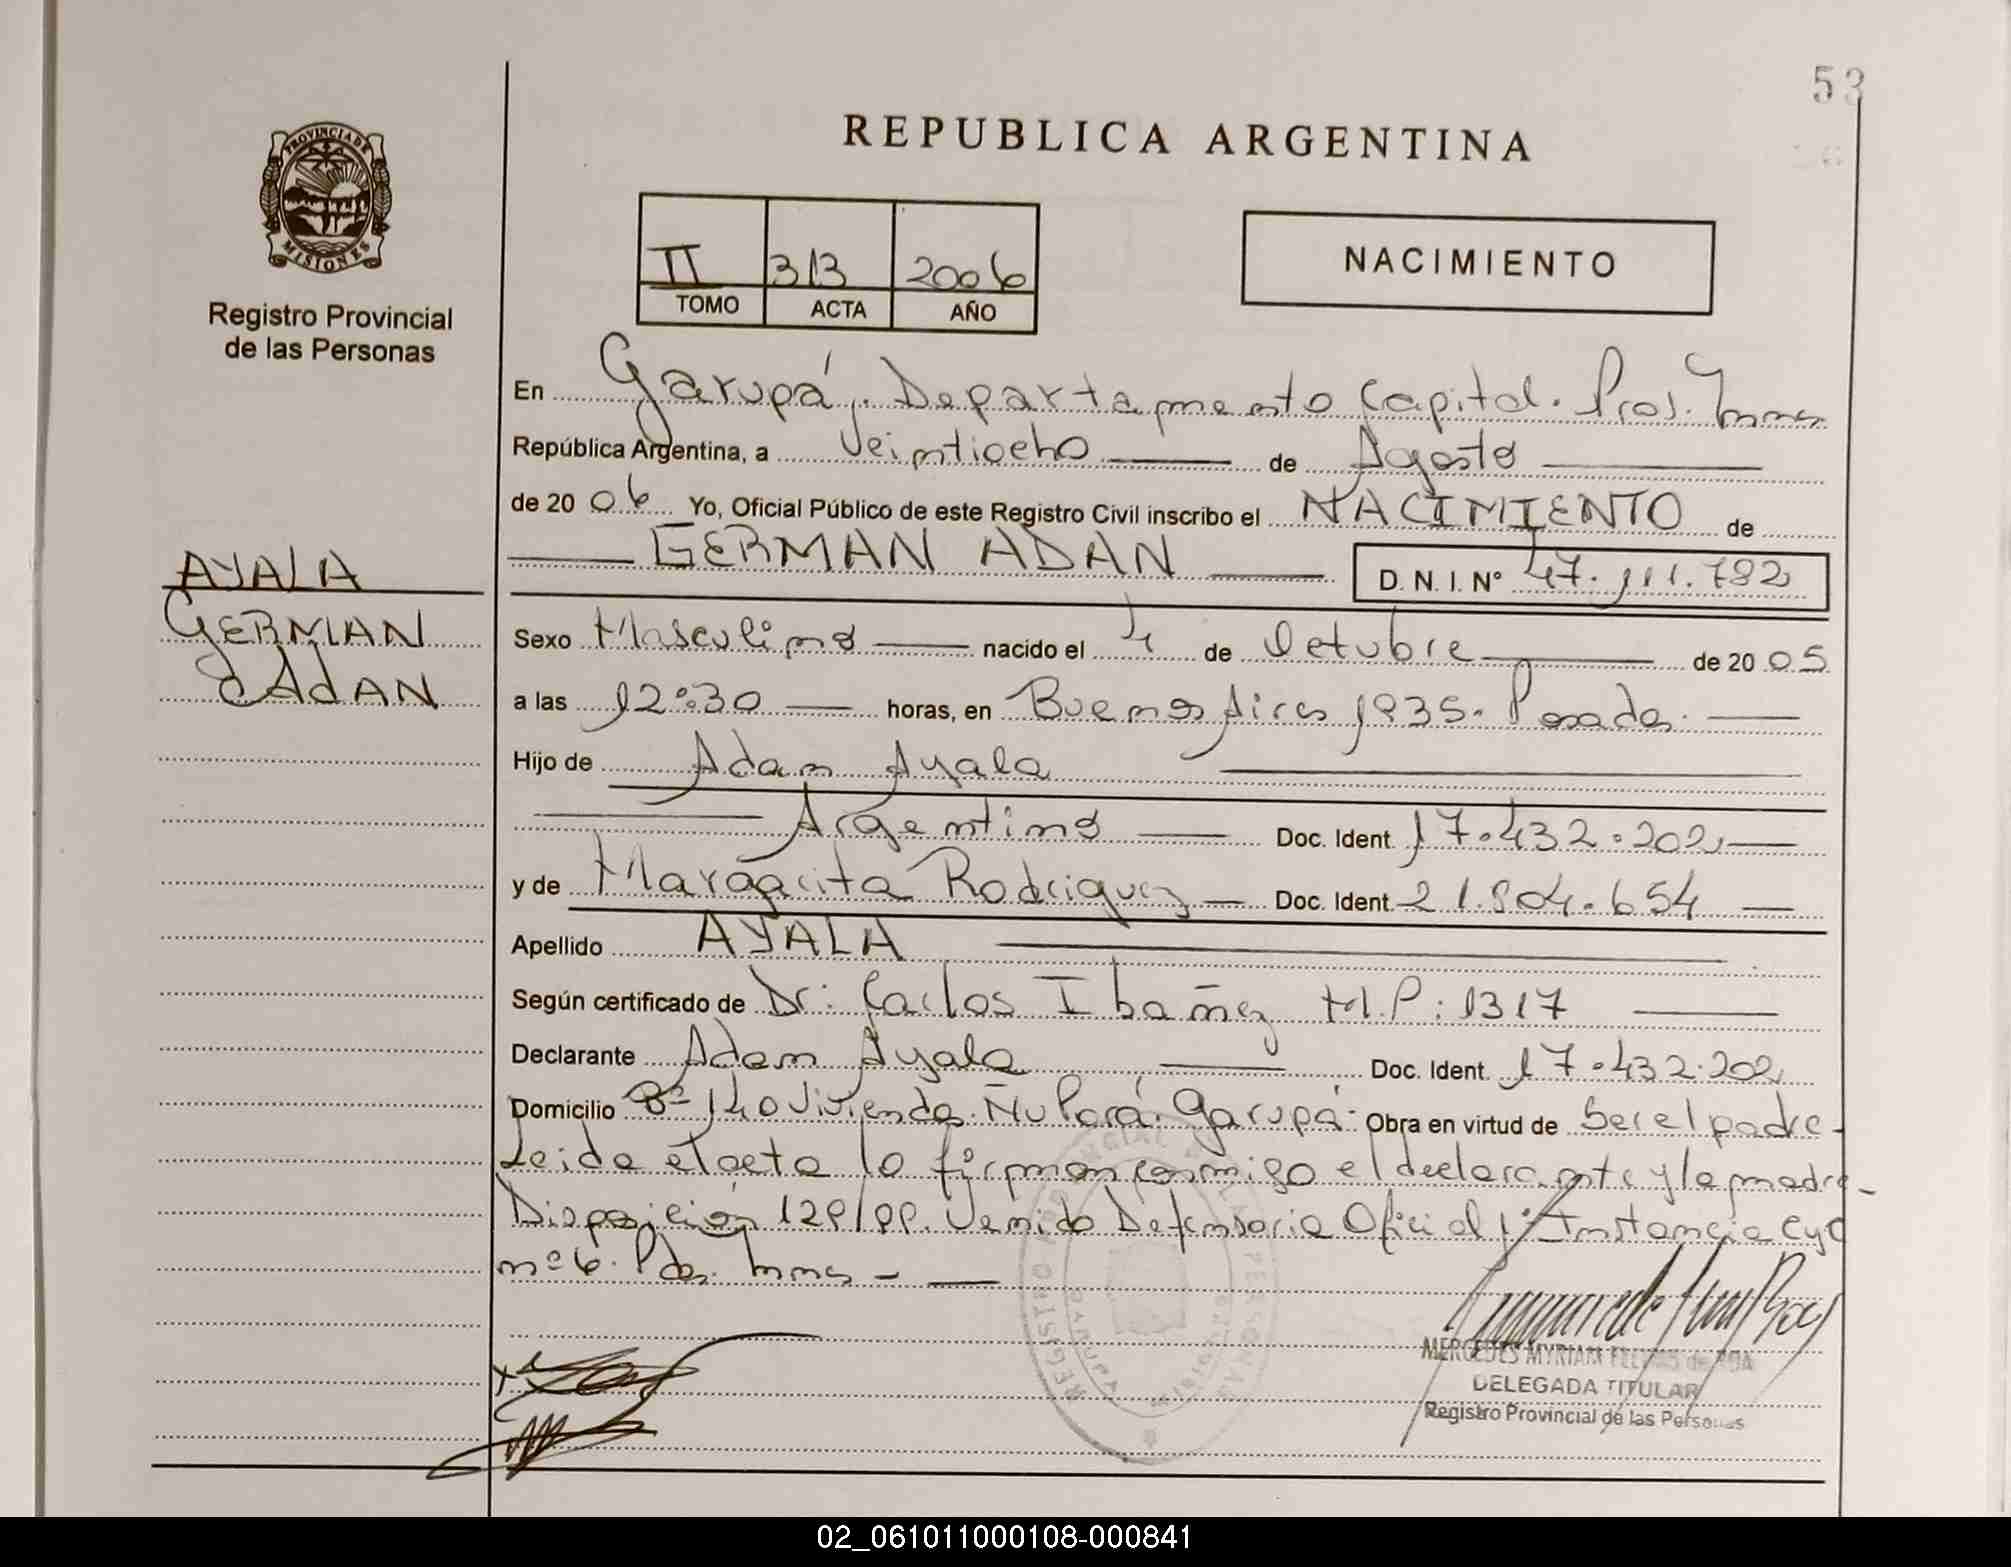 53
REPUBLICA ARGENTINA
PROVINCIA DE MISIONES
Registro Provincial
de las Personas
II 313 2006
TOMO ACTA AÑO
NACIMIENTO
En Garupá, Departamento Capital. Pcia. Mnes
República Argentina, a Veintiocho de Agosto
de 2006 Yo, Oficial Público de este Registro Civil inscribo el NACIMIENTO de
GERMAN ADAN D. N. I. Nº 47.111.782
AYALA
GERMAN
ADAN
Sexo Masculino nacido el 4 de Octubre de 2005
a las 12:30 horas, en Buenos Aires 1935. Posadas.
Hijo de Adan Ayala
Argentino Doc. Ident. 17.432.202
y de Margarita Rodriguez Doc. Ident. 21.804.654
Apellido AYALA
Según certificado de Dr: Carlos Ibañez M.P: 1317
Declarante Adan Ayala Doc. Ident. 17.432.202
Domicilio Bº 140 Viviendas. Ñu Porá. Garupá. Obra en virtud de Ser el padre.
Leida el acta la firman conmigo el declarante y la madre.
Disposición 129/99. Venido Defensoria Oficial 1º Instancia CyC
nº 6. Pdas. Mnes
MERCEDES MYRIAM de
DELEGADA TITULAR
Registro Provincial de las Personas
REGISTRO PROVINCIAL DE LAS PERSONAS
GARUPA
MISIONES
02_061011000108-000841